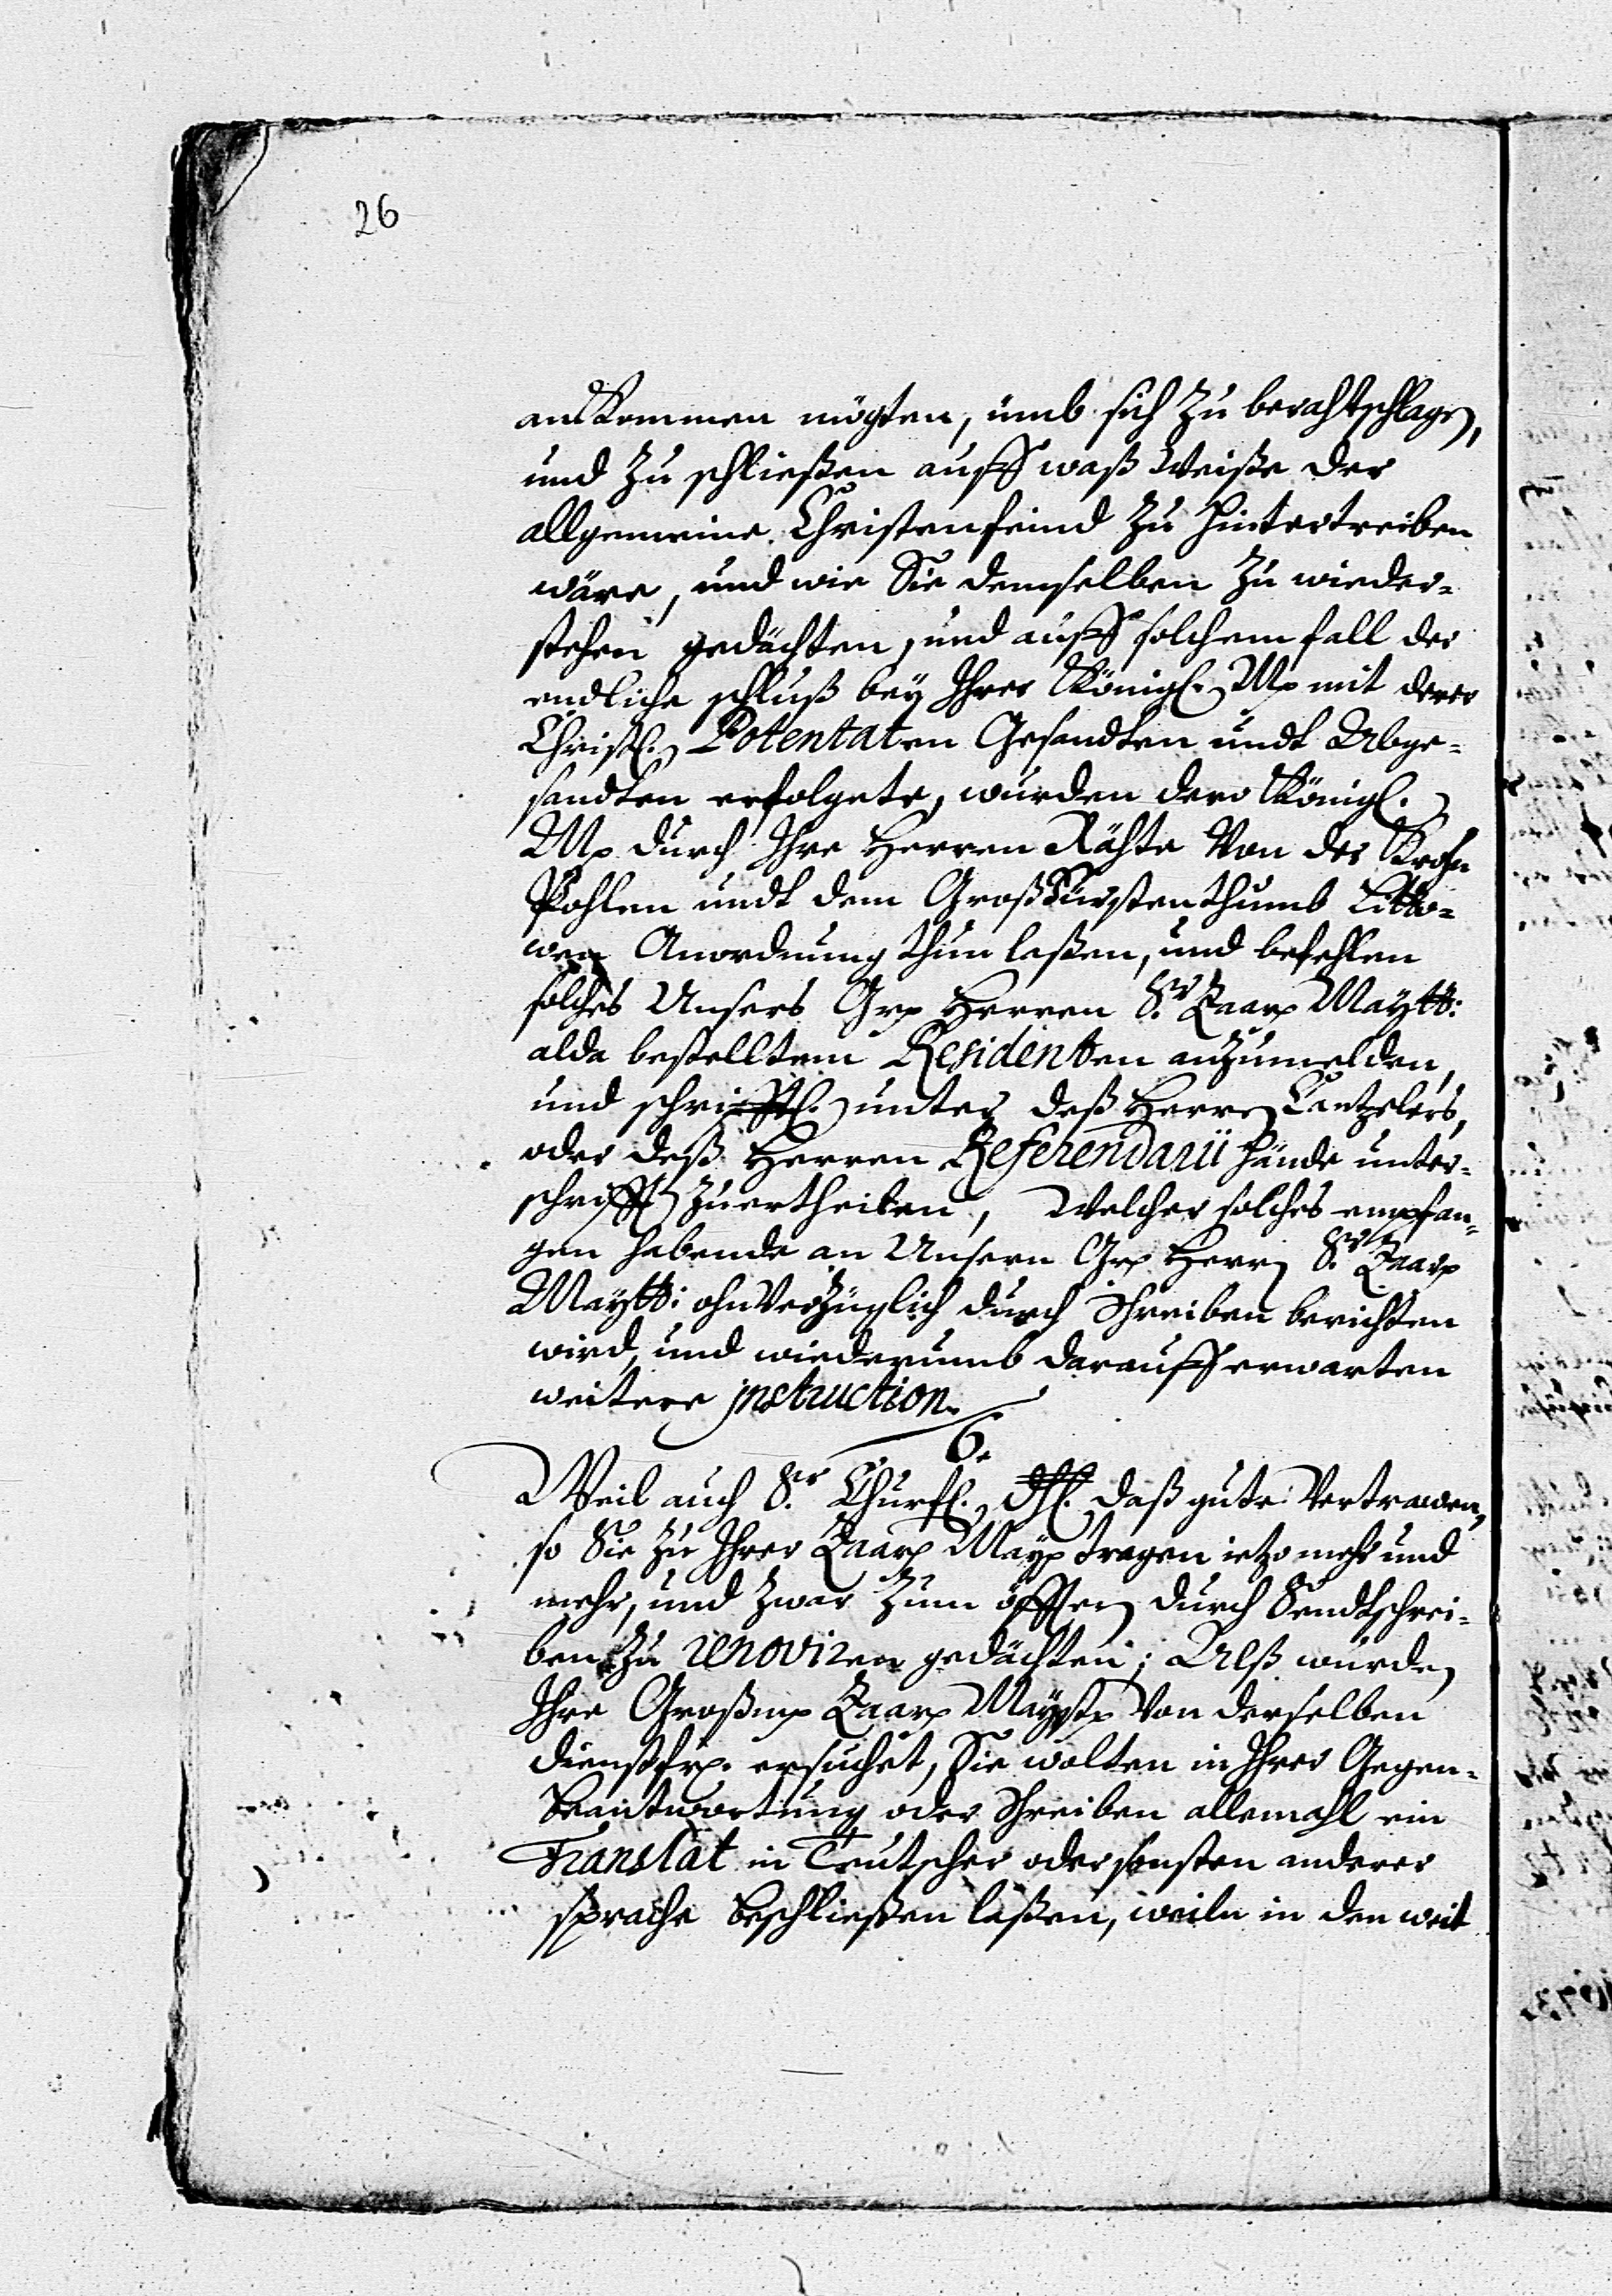 26
anKommen mögten, umb sich zu berahtschlagen,
und zu schließen auff waß Weiße der
allgemeine Christenfeind zu hintertreiben
wäre, und wie Sie demselben zu wieder-
stehen gedächten, und auff solchem fall der
endliche schluß bey Ihrer Königl. M. mit derer
Christl. Potentaten Gesandten undt Abge-
sandten erfolgete, würden dero Königl.
M. durch Ihre Herren Rähte Von der Krohn
Pohlen undt dem Großfürstenthumb Litto-
wen Anordnung thun laßen, und befehlen
solches Unsers Gr. Herren Sr. Zaar. Maytt:
alda bestelltem Residenten anzumelden,
und schrifftl. unter deß Herren Cantzelers,
oder deß Herren Referendarii hände unter-
schrifft zuertheilen, Welcher solches empfan-
gen habende an Unsern Gr. Herrn Sr. Zaar.
Maytt: ohnVerzüglich durch Schreiben berichten
wird, und wiederumb darauff erwarten
weitere jnstruction.
6.
Weil auch Sr. Churfl. Dhl. daß gute Vertrawen,
so Sie zu Ihrer Zaar. May. tragen ietzo mehr und
mehr, und zwar zum öfftern durch Sendtschrei-
ben zu renoviren gedächten; Alß würden
Ihre Großm. Zaar. Mayst. Von derselben
dienstfr. ersuchet, Sie wolten in Ihrer Gegen-
Beantwortung oder Schreiben allemahl ein
Translat in Teutscher oder sonsten anderer
sprache beschließen laßen, weiln in den weit